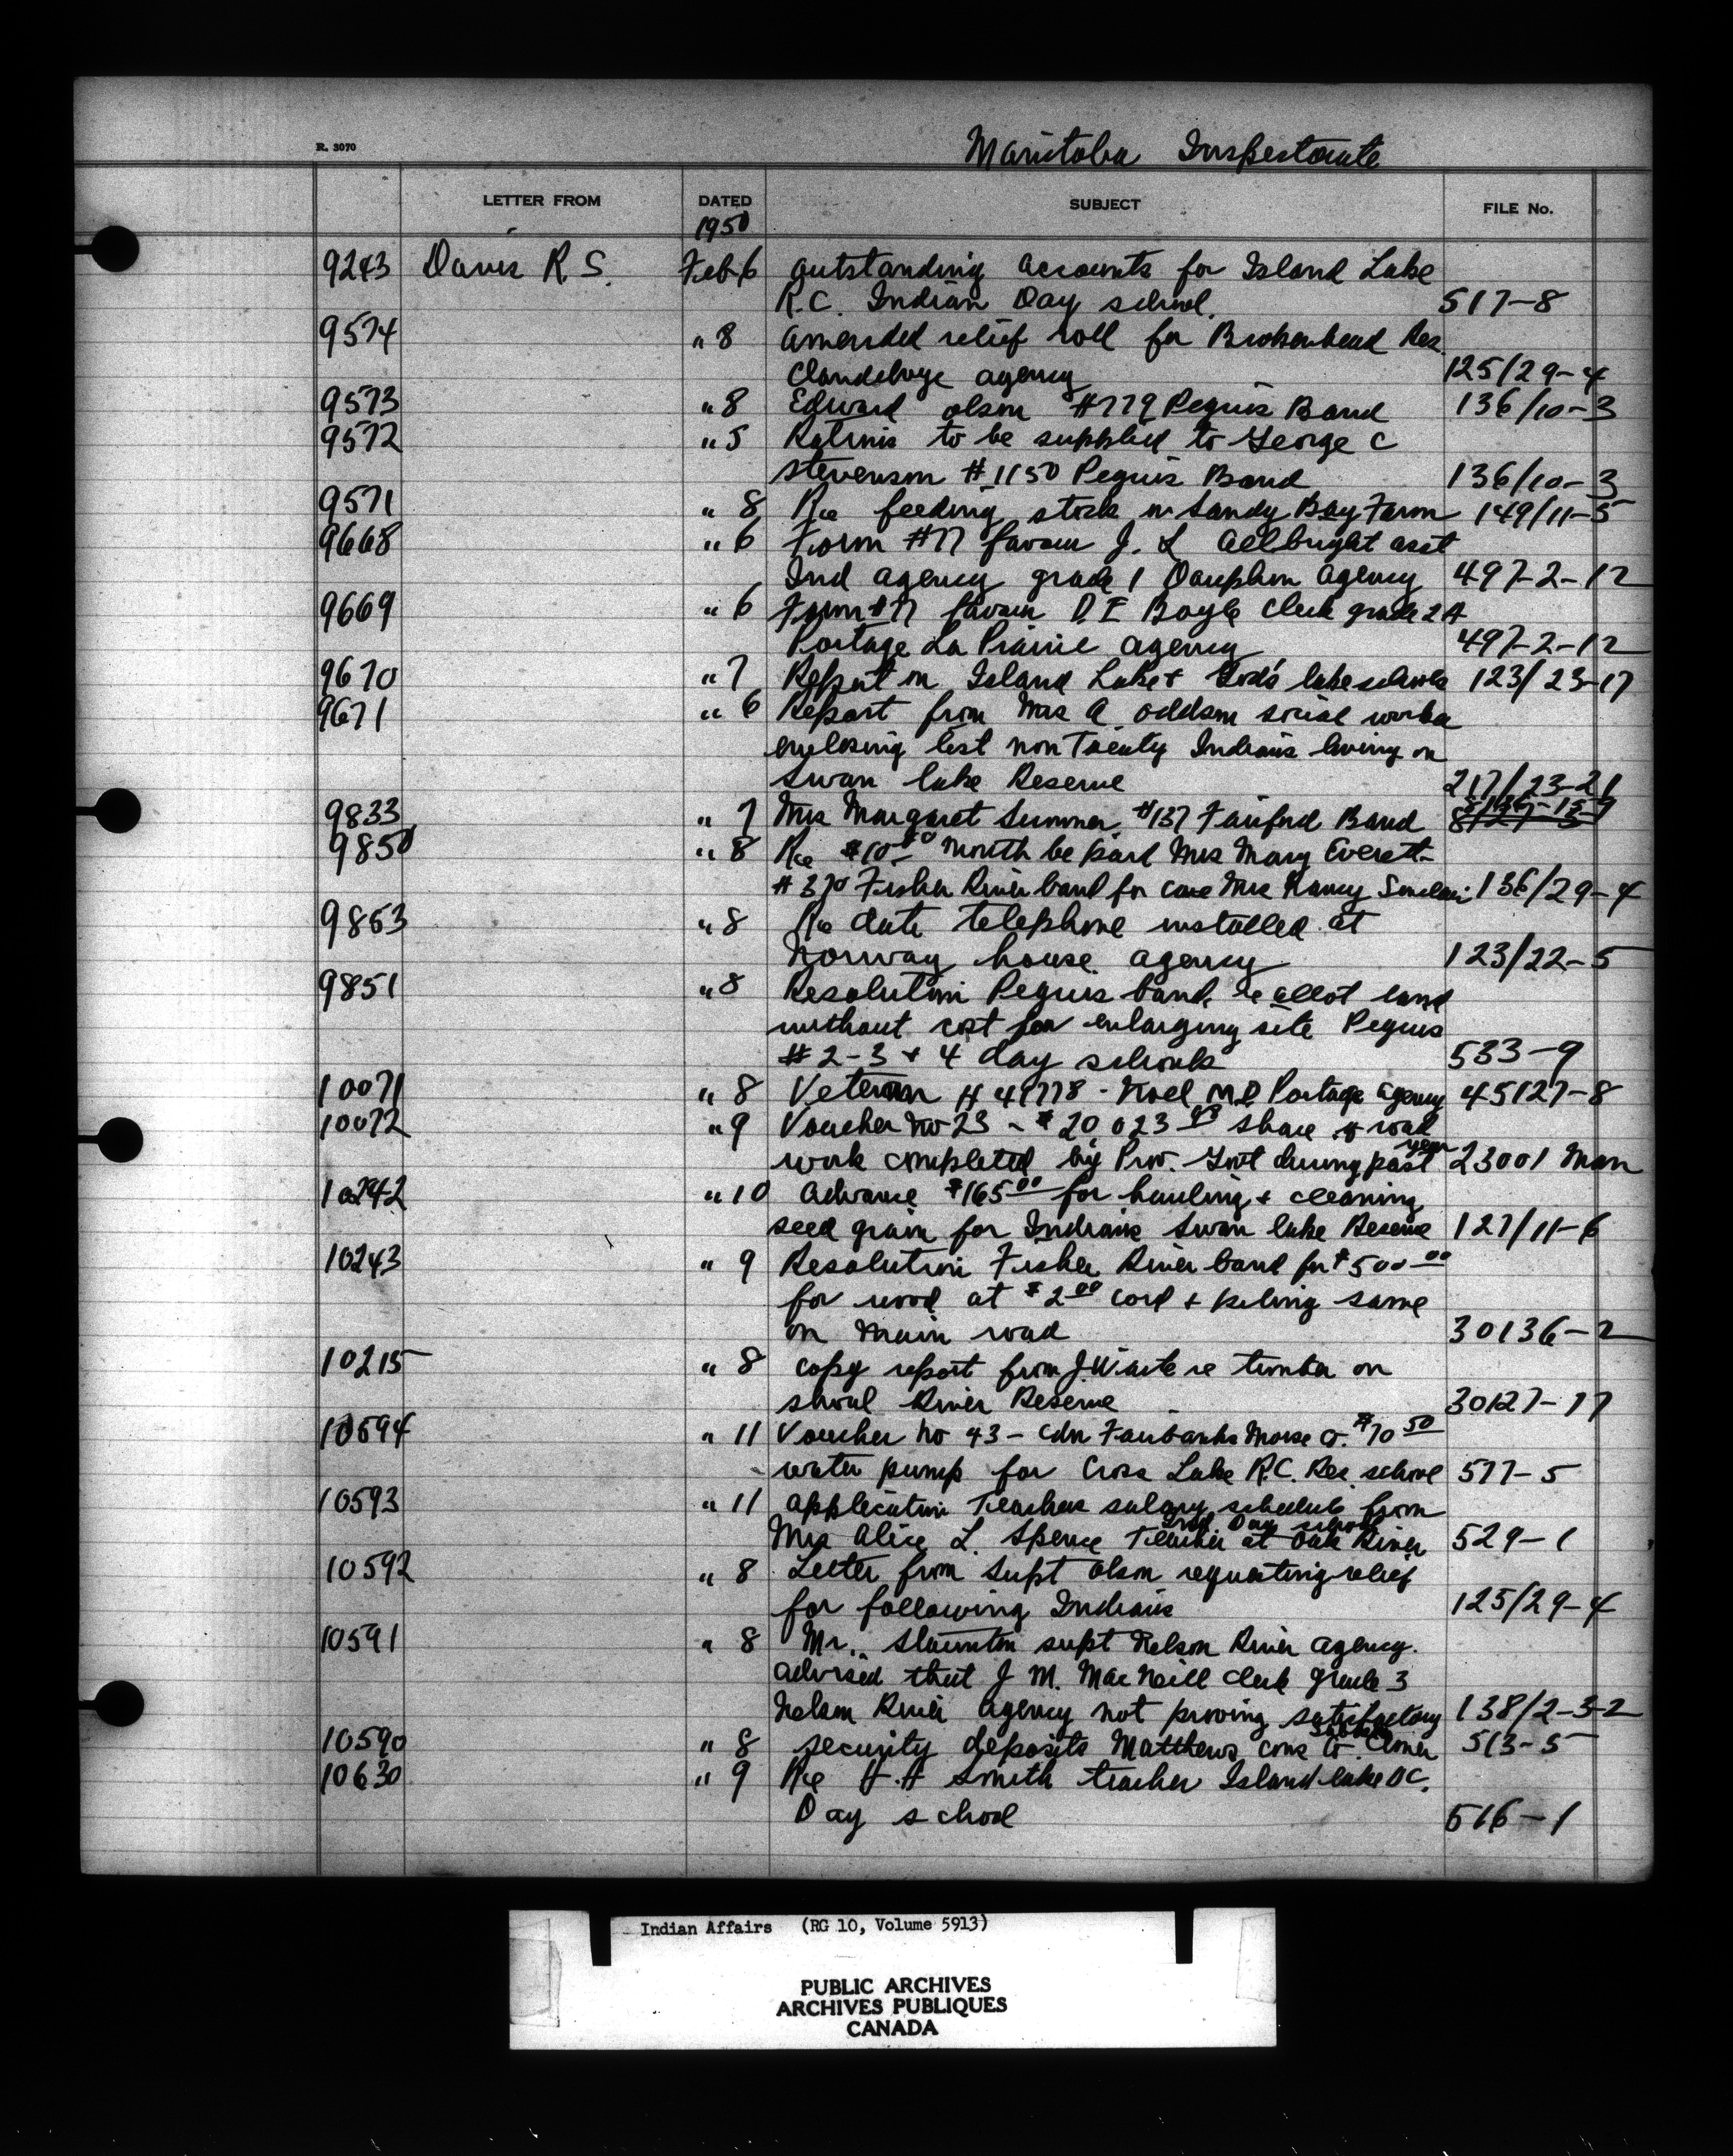 R. 3070
Manitoba Inspectorate
LETTER FROM DATED SUBJECT FILE No.
1950
9243 Davis R S. Feb 6 Outstanding accounts for Island Lake
R.C. Indian Day school. 517-8
9574 " 8 Amended relief roll for Brokenhead Res.
Clandeboye agency 125/29-4
9573 " 8 Edward Olson #779 Peguis Band 136/10-3
9572 " 5 Rations to be supplied to George C
Stevenson #1150 Peguis Band 136/10-3
9571 " 8 Re feeding stock on Sandy Bay Farm 149/11-5
9668 " 6 Form #77 favour J. L Allbright asst
Ind agency grade 1 Dauphin Agency 497-2-12
9669 " 6 Form #77 favour D. E Boyle Clerk grade 2A
Portage La Prairie agency 497-2-12
9670 " 7 Report on Island Lake + God's lake schools 123/23-17
9671 " 6 Report from Mrs A Oddson social worker
enclosing list non Treaty Indians living on
Swan lake Reserve 217/23-21
9833 " 7 Mrs Margaret Sumner #137 Fairford Band
9850 " 8 Re $10.00 month be paid Mrs Mary Everett
#370 Fisher River band for care Mrs Nancy Sinclair 136/29-4
9853 " 8 Re date telephone installed at
Norway house agency 123/22-5
9851 " 8 Resolution Peguis band re allot land
without cost for enlarging site Peguis
#2-3 + 4 day schools 533-9
10071 " 8 Veteran # 49778 - Noel M.D Portage agency 45127-8
10072 " 9 Voucher No 23 - $20 023 share of road
work completed by Prov. Govt during past year 23001 Man
10242 " 10 Advance $165 00 for hauling + cleaning
seed grain for Indians Swan lake Reserve 127/11-6
10243 " 9 Resolution Fisher River band for $500 00
for wood at $2 00 cord + piling same
on main road 30136-2
10215 " 8 copy report from J. Waite re timber on
shoal River Reserve 30127-17
10594 " 11 Voucher No 43 - Cdn Fairbanks Morse Co. $70 50
water pump for Cross Lake R.C. Res. school 577-5
10593 " 11 Application Teachers salary schedule from
Mrs Alice L. Spence Teacher at Oak River Ind Day school 529-1
10592 " 8 Letter from Supt Olson requesting relief
for following Indians 125/29-4
10591 " 8 Mr. Staunton supt Nelson River agency.
advised that J M. MacNeill clerk grade 3
Nelson River agency not proving satisfactory 138/2-3-2
10590 " 8 security deposits Matthews Cons Co. 513-5
10630 " 9 Re H. H Smith teacher Island lake
Day school 516-1
Indian Affairs (RG 10, Volume 5913)
PUBLIC ARCHIVES
ARCHIVES PUBLIQUES
CANADA